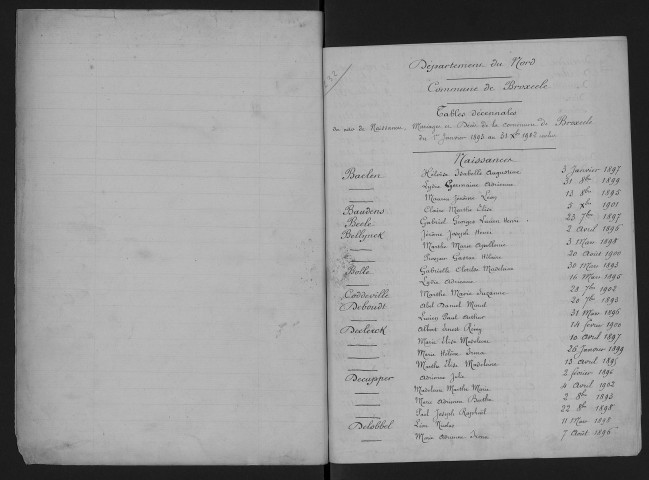 Département du Nord
Commune de Broxeele
Tables décennales
de Naissances, Mariages et Décès de la commune de Broxeele
du 1er Janvier 1893 au 31 Xbre 1902
Naissances
Baelen Héloïse Isabelle Augustine 3 Janvier 1897
Lydie Germaine Adrienne 31 8bre 1899
Maurice Jérôme Léon 13 8bre 1895
Baudens Claire Marthe Elise 5 Xbre 1901
Beele Gabriel Georges Lucien Henri 23 7bre 1897
Bellynck Jérôme Joseph Henri 2 Avril 1896
Marthe Marie Apolline 3 Mars 1898
Gaston Hilaire 20 Août 1900
Bolle Gabrielle Clarisse Madeleine 30 Mars 1893
Lydie Adrienne 16 Mars 1895
Coddeville Marthe Marie Suzanne 28 7bre 1902
Deboudt Abel Daniel 20 7bre 1893
Lucien Paul Arthur 31 Mars 1896
Declerck Albert Ernest Rémy 14 février 1900
Marie Elise Madeleine 10 Avril 1897
Marie Hélène Irma 26 Janvier 1899
Marthe Elise Madeleine 13 Avril 1895
Decupper Adrienne Julie 2 février 1896
Madeleine Marthe Marie 4 Avril 1902
Marie Adrienne Berthe 2 8bre 1893
Paul Joseph Raphaël 22 8bre 1898
Delobbel Léon Nicolas 11 Mars 1895
Marie Adrienne Irma 7 Août 1896